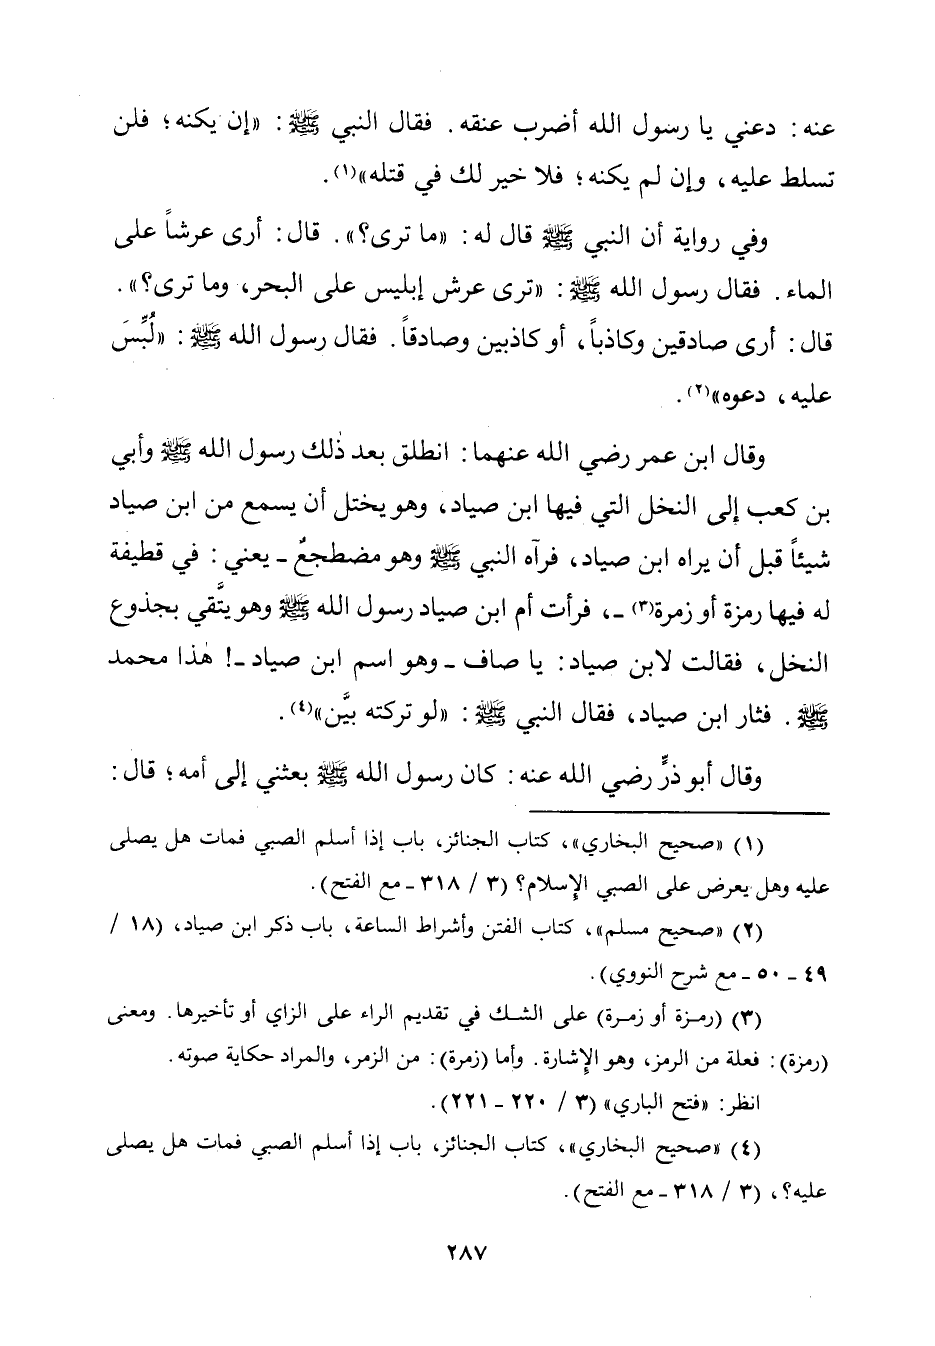 عنه: دعني يا رسول الله أضرب عنقه. فقال النبي ﷺ: «إن يكنه؛ فلن
تسلط عليه، وإن لم يكنه؛ فلا خير لك في قتله»(١).
وفي رواية أن النبي ﷺ قال له: «ما ترى؟». قال: أرى عرشاً على
الماء. فقال رسول الله ﷺ: «ترى عرش إبليس على البحر، وما ترى؟».
قال: أرى صادقين وكاذباً، أو كاذبين وصادقاً. فقال رسول الله ﷺ: «لُبِّسَ
عليه، دعوه»(٢).
وقال ابن عمر رضي الله عنهما: انطلق بعد ذٰلك رسول الله ﷺ وأبي
بن كعب إلى النخل التي فيها ابن صياد، وهو يختل أن يسمع من ابن صياد
شيئاً قبل أن يراه ابن صياد، فرآه النبي ﷺ وهو مضطجعٌ ـ يعني: في قطيفة
له فيها رمزة أو زمرة(٣) ـ، فرأت أم ابن صياد رسول الله ﷺ وهو يتَّقي بجذوع
النخل، فقالت لابن صياد: يا صاف ـ وهو اسم ابن صياد ـ! هٰذا محمد
ﷺ. فثار ابن صياد، فقال النبي ﷺ: «لو تركته بيَّن»(٤).
وقال أبو ذرٍّ رضي الله عنه: كان رسول الله ﷺ بعثني إلى أمه؛ قال:
(١) «صحيح البخاري»، كتاب الجنائز، باب إذا أسلم الصبي فمات هل يصلى
عليه وهل يعرض على الصبي الإسلام؟ (٣ / ٣١٨ ـ مع الفتح).
(٢) «صحيح مسلم»، كتاب الفتن وأشراط الساعة، باب ذكر ابن صياد، (١٨ /
٤٩ ـ ٥٠ ـ مع شرح النووي).
(٣) (رمزة أو زمرة) على الشك في تقديم الراء على الزاي أو تأخيرها. ومعنى
(رمزة): فعلة من الرمز، وهو الإشارة. وأما (زمرة): من الزمر، والمراد حكاية صوته.
انظر: «فتح الباري» (٣ / ٢٢٠ ـ ٢٢١).
(٤) «صحيح البخاري»، كتاب الجنائز، باب إذا أسلم الصبي فمات هل يصلى
عليه؟، (٣ / ٣١٨ ـ مع الفتح).
٢٨٧